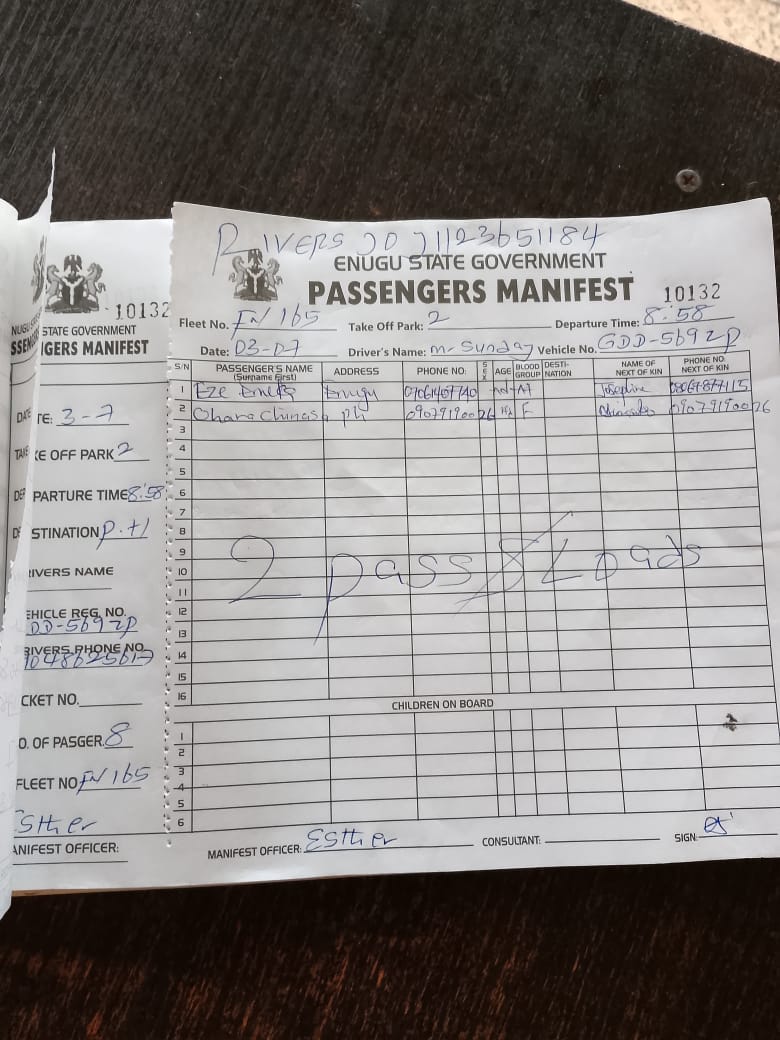 10132
STATE GOVERNMENT
GERS MANIFEST
TE: 3-7
KE OFF PARK 2
PARTURE TIME 8:58
STINATION
RIVERS NAME
EHICLE REG. NO.
DD-569ZP
RIVERS PHONE NO.
CKET NO.
O. OF PASGER. 8
FLEET NO. EN 165
Esther
ANIFEST OFFICER:
RIVERS
ENUGU STATE GOVERNMENT
PASSENGERS MANIFEST
10132
Fleet No. EN 165 Take Off Park: 2 Departure Time: 8:58
Date: 03-07 Driver's Name: Mr Sunday Vehicle No. GDD-569ZP
S/N PASSENGER'S NAME (Surname First) ADDRESS PHONE NO: SEX AGE BLOOD GROUP DESTI-NATION NAME OF NEXT OF KIN PHONE NO. NEXT OF KIN
1 Eze Enugu
2 Ohara ph 09079190026 F 09079190026
3
4
5
6
7
8
9
10
11
12
13
14
15
16
2 pass & Loads
CHILDREN ON BOARD
1
2
3
4
5
6
MANIFEST OFFICER: Esther CONSULTANT: SIGN: